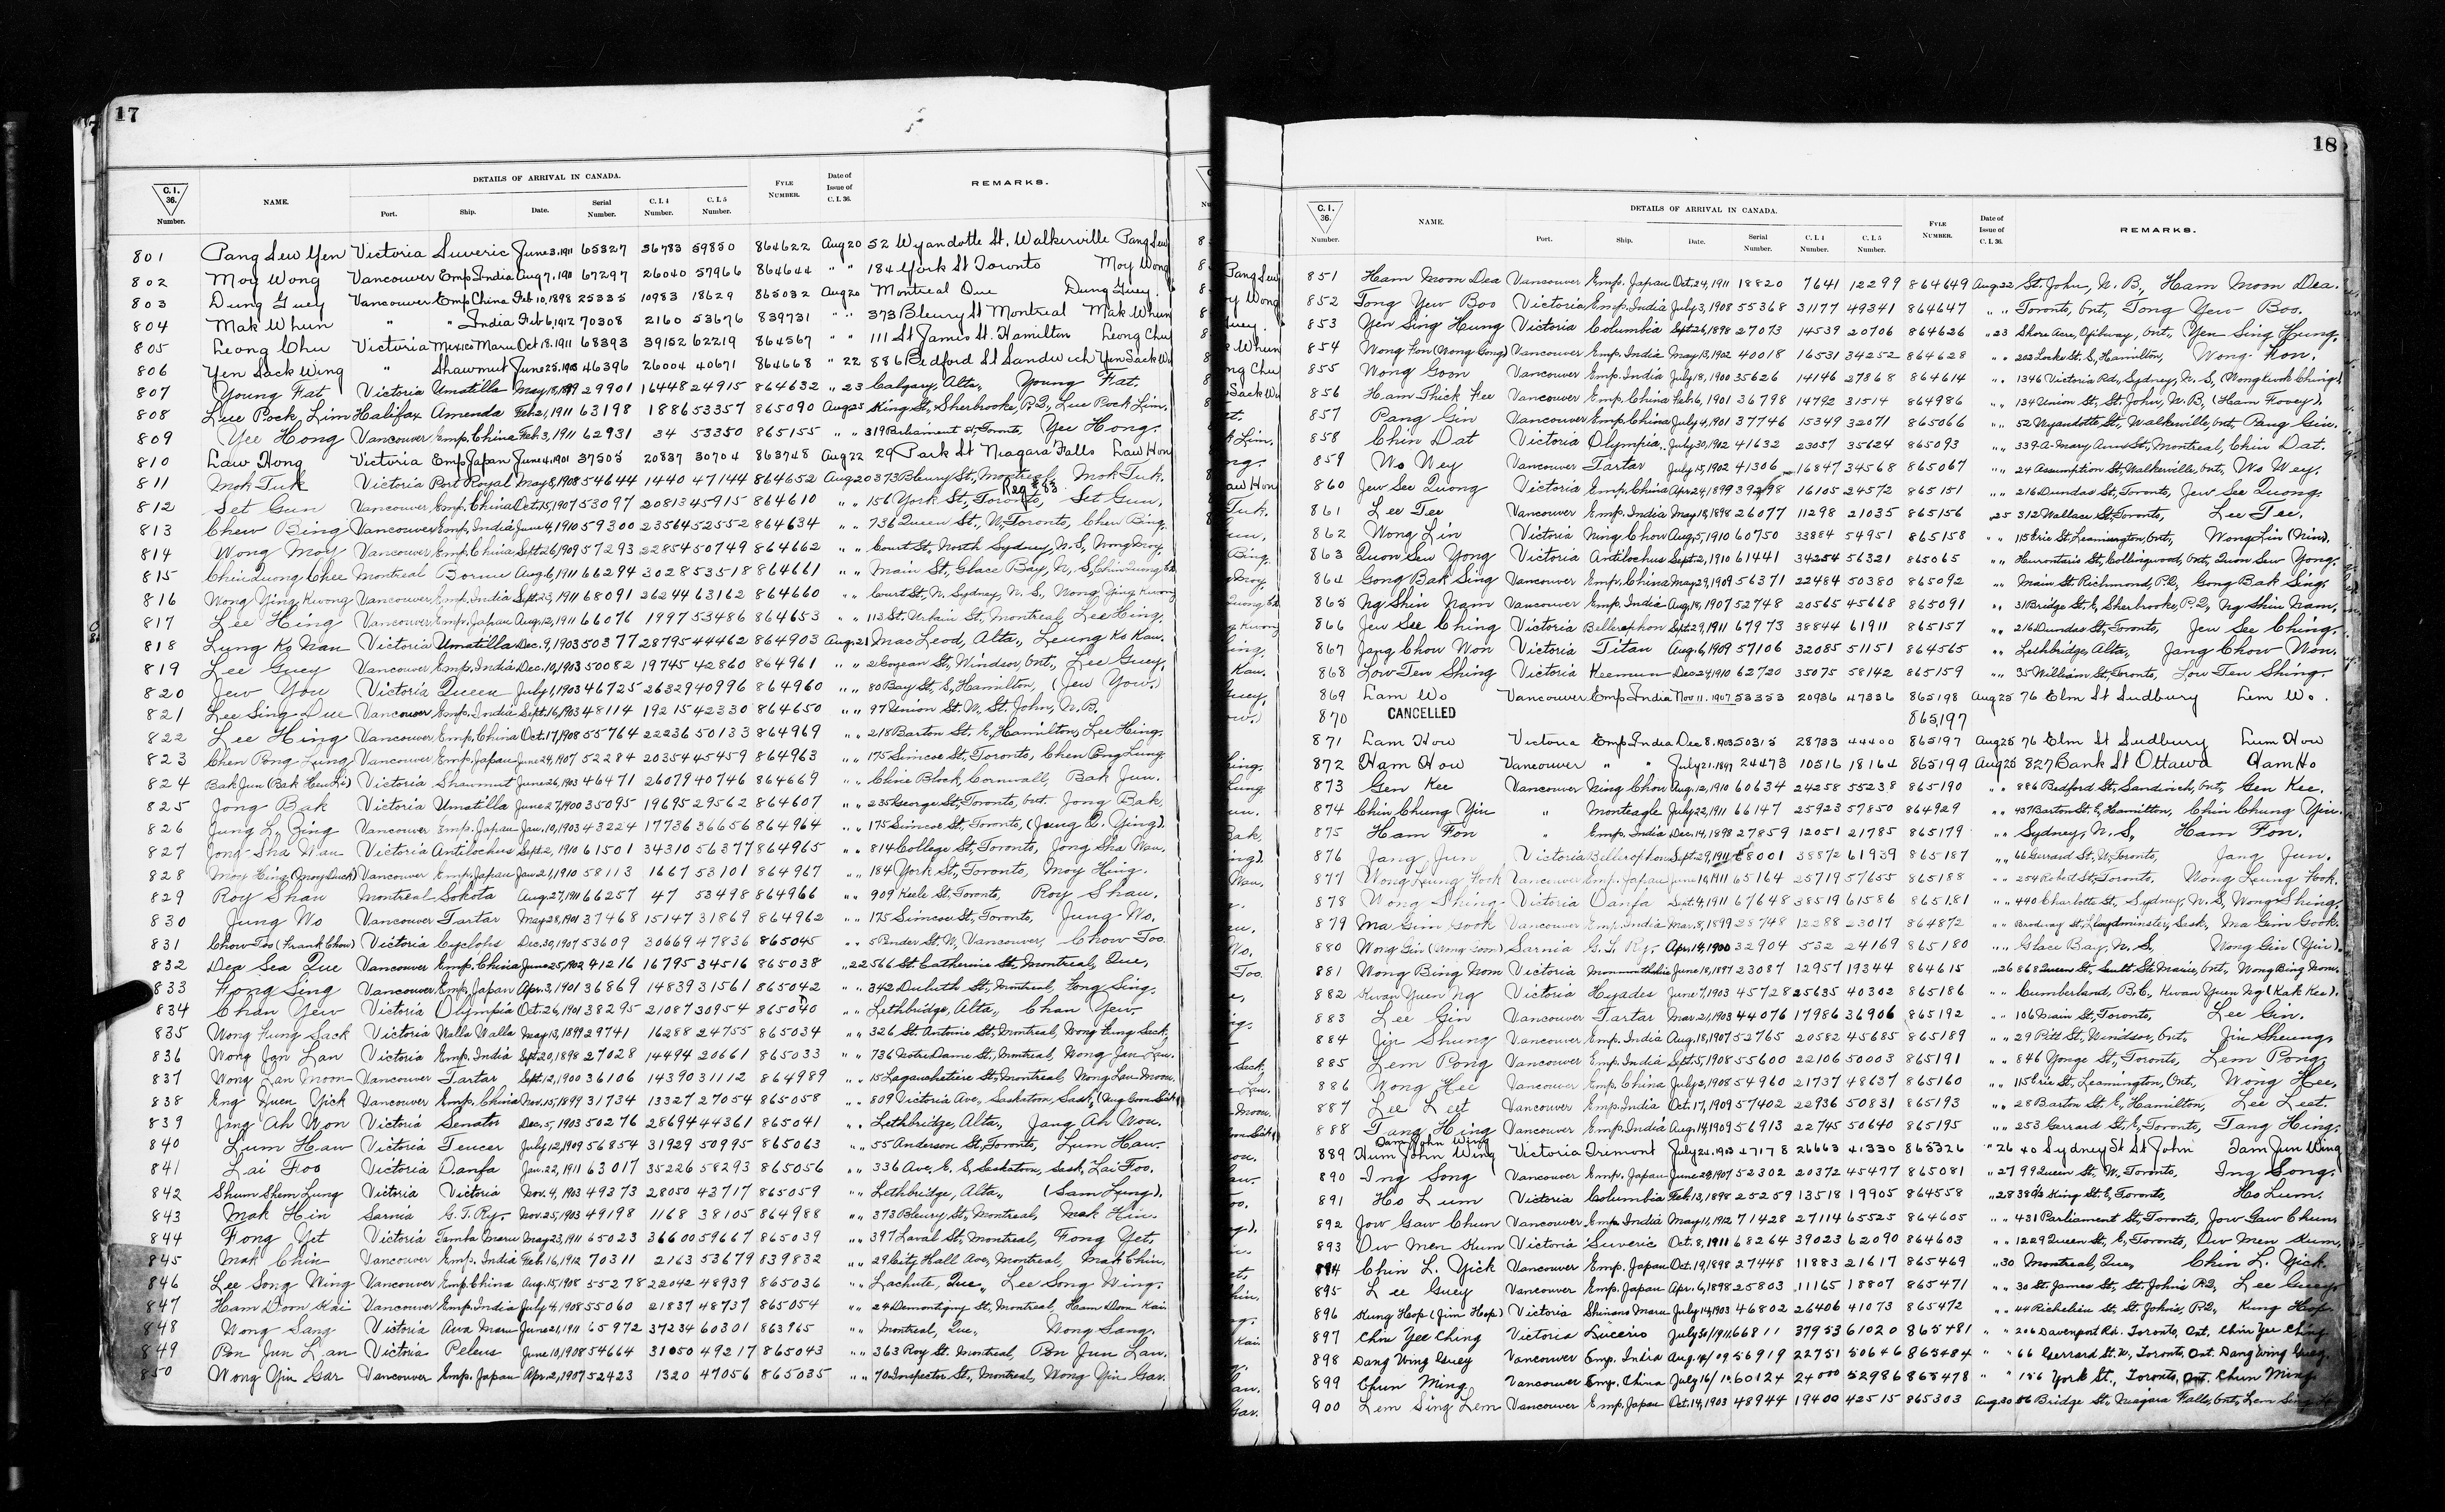 17
DETAILS OF ARRIVAL IN CANADA.
C.I. 36. Number. NAME. Port. Ship. Date. Serial Number. C.I.4 Number. C.I.5 Number. FYLE NUMBER. Date of Issue of C.I.36. REMARKS.
801 Pang Sew Yen Victoria Suveric June 3, 1911 65327 36783 59850 864622 Aug 20 52 Wyandotte St, Walkerville Pang Sew
802 Moy Wong Vancouver Emp India Aug 7, 1911 67297 26040 57966 864644 " " 184 York St Toronto Moy Wong
803 Dung Guey Vancouver Emp China Feb 10, 1898 25335 10983 18629 865032 Aug 20 Montreal Que Dung Guey.
804 Mak Whun " " India Feb 6, 1912 70308 2160 53676 839731 " " 373 Bleury St Montreal Mak Whun
805 Leong Chu Victoria Mexico Maru Oct 18, 1911 68393 39152 62219 864567 " " 111 St James St. Hamilton Leong Chu
806 Yen Sack Wing " Shawmut June 25, 1903 46396 26004 40671 864668 " 22 886 Bedford St Sandwich Yen Sack W
807 Young Fat Victoria Umatilla May 18, 1899 29901 16448 24915 864632 " 23 Calgary, Alta., Young Fat.
808 Lue Pock Lim Halifax Amenda Feb 2, 1911 63198 1886 53357 865090 Aug 25 King St, Sherbrooke, P.Q., Lue Pock Lim.
809 Yee Hong Vancouver Emp. China Feb. 3, 1911 62931 34 53350 865155 " " 319 Parliament St, Toronto, Yee Hong.
810 Law Hong Victoria Emp Japan June 4, 1901 37505 20837 30704 863748 Aug 22 29 Park St Niagara Falls Law Hon
811 Mok Tuk Victoria Port Royal May 8, 1908 54644 1440 47144 864652 Aug 20 373 Bleury St, Montreal, Mok Tuk.
812 Set Gun Vancouver Emp. China Oct. 15, 1907 53097 20813 45915 864610 " " 156 York St, Toronto, Set Gun.
813 Chew Bing Vancouver Emp. India June 4, 1910 59300 23564 52552 864634 " " 736 Queen St, W, Toronto, Chew Bing.
814 Wong Moy Vancouver Emp. China Sept. 26, 1909 57293 22854 50749 864662 " " Court St, North Sydney, N.S, Wong Moy.
815 Chin Quong Chee Montreal Bornu Aug. 6, 1911 66294 3028 53518 864661 " " Main St, Glace Bay, N.S,
816 Wong Ying Kwong Vancouver Emp. India Sept. 23, 1911 68091 26244 63162 864660 " " Court St, N. Sydney, N.S, Wong Ying Kwong
817 Lee Hing Vancouver Emp. Japan Aug. 12, 1911 66076 1997 53486 864653 " " 112 St. Urbain St, Montreal, Lee Hing.
818 Lung Ko Nau Victoria Umatilla Dec. 9, 1903 50377 28795 44462 864903 Aug. 21 Mac Leod, Alta., Leung Ko Kau.
819 Lee Guey Vancouver Emp. India Dec. 10, 1903 50082 19745 42860 864961 " " 2 Goyeau St, Windsor, Ont., Lee Guey.
820 Jew You Victoria Queen July 1, 1903 46725 26329 40996 864960 " " 80 Bay St, S, Hamilton, (Jew Yow.)
821 Lee Sing Due Vancouver Emp. India Sept. 16, 1903 48114 19215 42330 864650 " " 97 Union St. W. St. John, N.B.
822 Lee Hing Vancouver Emp. China Oct. 17, 1908 55764 22236 50133 864969 " " 218 Barton St. E, Hamilton, Lee Hing.
823 Chen Pong Lung Vancouver Emp. Japan June 24, 1907 52284 20354 45459 864963 " " 175 Simcoe St, Toronto, Chen Pong Lung
824 Bak Jun Victoria Shawmut June 26, 1903 46471 26079 40746 864669 " " Block, Cornwall, Bak Jun.
825 Jong Bak Victoria Umatilla June 27, 1900 35095 19695 29562 864607 " " 235 George St, Toronto, Ont. Jong Bak.
826 Jung L. Bing Vancouver Emp. Japan Jan. 10, 1903 43224 17736 36656 864964 " " 175 Simcoe St, Toronto, (Jung Q. Ying).
827 Jong Sha Wau Victoria Antilochus Sept. 2, 1910 61501 34310 56377 864965 " " 814 College St, Toronto, Jong Sha Wau.
828 Moy Hing (Moy Duck) Vancouver Emp. Japan Jan 21, 1910 58113 1667 53101 864967 " " 184 York St, Toronto, Moy Hing.
829 Roy Shau Montreal Sokota Aug. 27, 1911 66257 47 53498 864966 " " 909 Keele St, Toronto, Roy Shau.
830 Jung Wo Vancouver Tartar May 28, 1901 37468 15147 31869 864962 " " 175 Simcoe St, Toronto, Jung Wo.
831 Chow Too (Frank Chow) Victoria Cyclops Dec. 30, 1907 53609 30669 47836 865045 " " 5 Pender St, W, Vancouver, Chow Too.
832 Dea Sea Que Vancouver Emp. China June 25, 1902 41216 16795 34516 865038 " 22 566 St. Catherine St, Montreal, Que,
833 Fong Sing Vancouver Emp. Japan Apr. 3, 1901 36869 14839 31561 865042 " " 342 Duluth St, Montreal, Fong Sing.
834 Chan Yew Victoria Olympia Oct. 26, 1901 38295 21087 30954 865040 " " Lethbridge, Alta., Chan Yew.
835 Wong Kung Sack Victoria Walla Walla May 13, 1899 29741 16288 24755 865034 " " 326 St. Antoine St, Montreal, Wong Kung Sack.
836 Wong Jan Lan Victoria Emp. India Sept. 20, 1898 27028 14494 20661 865033 " " 736 Notre Dame St, Montreal, Wong Jan Lau.
837 Wong Lan Moon Vancouver Tartar Sept. 12, 1900 36106 14390 31112 864989 " " 15 Lagauchetiere St, Montreal, Wong Lau Moon.
838 Eng Huen Yick Vancouver Emp. China Nov. 15, 1899 31734 13327 27054 865058 " " 809 Victoria Ave, Saskatoon, Sask,
839 Jang Ah Won Victoria Senator Dec. 5, 1903 50276 28694 44361 865041 " " Lethbridge, Alta., Jang Ah Won.
840 Lum Haw Victoria Teucer July 12, 1909 56854 31929 50995 865063 " " 55 Anderson St, Toronto, Lum Haw.
841 Lai Foo Victoria Oanfa Jan. 22, 1911 63017 35226 58293 865056 " " 336 Ave, E, S, Saskatoon, Sask, Lai Foo.
842 Shum Shem Lung Victoria Victoria Nov. 4, 1903 49373 28050 43717 865059 " " Lethbridge, Alta., (Sam Lung).
843 Mak Hin Sarnia G.T. Ry. Nov. 25, 1903 49198 1168 38105 864988 " " 373 Bleury St, Montreal, Mak Hin.
844 Fong Yet Victoria Tamba Maru May 23, 1911 65023 36600 59667 865039 " " 397 Laval St, Montreal, Fong Yet.
845 Mak Chin Vancouver Emp. India Feb. 16, 1912 70311 2163 53679 839832 " " 29 City Hall Ave, Montreal, Mak Chin.
846 Lee Song Wing Vancouver Emp. China Aug. 15, 1908 55278 22042 48939 865036 " " Lachute, Que., Lee Song Wing.
847 Ham Dom Kai Vancouver Emp. India July 4, 1908 55060 21837 48737 865054 " " 24 Demontigny St, Montreal, Ham Dom Kai
848 Wong Sang Victoria Awa Maru June 21, 1911 65972 37234 60301 863965 " " Montreal, Que., Wong Sang.
849 Pon Jun Lan Victoria Peleus June 10, 1908 54664 31050 49217 865043 " " 363 Roy St. Montreal, Pon Jun Lau.
850 Wong Yin Gar Vancouver Emp. Japan Apr. 2, 1907 52423 1320 47056 865035 " " 70 Inspector St, Montreal, Wong Yin Gar.
18
DETAILS OF ARRIVAL IN CANADA.
C.I. 36. Number. NAME. Port. Ship. Date. Serial Number. C.I.4 Number. C.I.5 Number. FYLE NUMBER. Date of Issue of C.I.36. REMARKS.
851 Ham Moon Dea Vancouver Emp. Japan Oct. 24, 1911 18820 7641 12299 864649 Aug 22 St. John, N.B., Ham Moon Dea.
852 Tong Yew Boo Victoria Emp. India July 3, 1908 55368 31177 49341 864647 " " Toronto, Ont, Tong Yew Boo.
853 Yen Sing Hung Victoria Columbia Sept. 26, 1898 27073 14539 20706 864626 " 23 Shore Acre, Ojibway, Ont., Yen Sing Hung.
854 Wong Fon (Wong Gong) Vancouver Emp. India May 13, 1902 40018 16531 34252 864628 " " 202 Locke St. S, Hamilton, Wong Fon.
855 Wong Goon Vancouver Emp. India July 18, 1900 35626 14146 27868 864614 " " 1346 Victoria Rd, Sydney, N.S, (Wong Kwok Ching)
856 Ham Thick Kee Vancouver Emp. China Feb. 6, 1901 36798 14792 31514 864986 " " 134 Union St, St. John, N.B. (Ham Fovey).
857 Pang Gin Vancouver Emp. China July 4, 1901 37746 15349 32071 865066 " " 52 Wyandotte St, Walkerville, Ont, Pang Gin.
858 Chin Dat Victoria Olympia July 30, 1902 41632 23057 35624 865093 " " 339-A-Mary Ann St, Montreal, Chin Dat.
859 Wo Wey Vancouver Tartar July 15, 1902 41306 16847 34568 865067 " " 24 Assumption St, Walkerville, Ont, Wo Wey.
860 Jew See Quong Victoria Emp. China Apr. 24, 1899 39298 16105 24572 865151 " " 216 Dundas St, Toronto, Jew See Quong.
861 Lee Tee Vancouver Emp. India May 18, 1898 26077 11298 21035 865156 " 25 312 Wallace St, Toronto, Lee Tee.
862 Wong Lin Victoria Ning Chow Aug. 5, 1910 60750 33884 54951 865158 " " 115 Erie St, Leamington, Ont, Wong Lin (Nin).
863 Quon Sew Yong Victoria Antilochus Sept. 2, 1910 61441 34254 56321 865065 " " Hurontario St, Collingwood, Ont, Quon Sew Yong.
864 Gong Bak Sing Vancouver Emp. China May 29, 1909 56371 22484 50380 865092 " " Main St. Richmond, P.Q, Gong Bak Sing.
865 Ng Shin Nam Vancouver Emp. India Aug. 18, 1907 52748 20565 45668 865091 " " 31 Bridge St. E, Sherbrooke, P.Q., Ng Shin Nam,
866 Jew See Ching Victoria Bellerophon Sept. 29, 1911 67973 38844 61911 865157 " " 216 Dundas St, Toronto, Jew See Ching.
867 Jang Chow Won Victoria Titan Aug. 6, 1909 57106 32085 51151 864565 " " Lethbridge, Alta., Jang Chow Won.
868 Low Ten Shing Victoria Keemun Dec 24, 1910 62720 35075 58142 865159 " " 35 William St, Toronto, Low Ten Shing.
869 Lam Wo Vancouver Emp India Nov 11, 1907 53353 20936 47336 865198 Aug 25 76 Elm St Sudbury Lim Wo.
870 CANCELLED 865,197
871 Lam How Victoria Emp India Dec 8, 1903 50315 28733 44400 865197 Aug 25 76 Elm St Sudbury Lum How
872 Ham How Vancouver " " July 21, 1897 24473 10516 18164 865199 Aug 25 827 Bank St Ottawa Ham Ho
873 Gen Kee Vancouver Ning Chow Aug. 12, 1910 60634 24258 55238 865190 " " 886 Bedford St, Sandwich, Ont, Gen Kee.
874 Chin Chung Yin " Monteagle July 22, 1911 66147 25923 57850 864929 " " 437 Barton St. E, Hamilton, Chin Chung Yin.
875 Ham Fon " Emp. India Dec. 14, 1898 27859 12051 21785 865179 " " Sydney, N.S, Ham Fon.
876 Jang Jun Victoria Bellerophon Sept. 29, 1911 68001 38872 61939 865187 " " 66 Gerrard St. W, Toronto, Jang Jun.
877 Wong Leung Fook Vancouver Emp. Japan June 14, 1911 65164 25719 57655 865188 " " 254 Robert St, Toronto, Wong Leung Fook.
878 Wong Shing Victoria Oanfa Sept. 4, 1911 67648 38519 61586 865181 " " 440 Charlotte St, Sydney, N.S, Wong Shing.
879 Ma Gim Gook Vancouver Emp. India Mar. 8, 1899 28748 12288 23017 864872 " " Brodway St, Lloydminster, Sask, Ma Gim Gook.
880 Wong Gin (Wong Goon) Sarnia G.T. Ry. Apr. 14, 1900 32904 532 24169 865180 " " Glace Bay, N.S, Wong Gin (Yin).
881 Wong Bing Mom Victoria June 18, 1897 23087 12957 19344 864615 " 26 868 Queen St, Sault Ste Marie, Ont, Wong Bing Mom.
882 Kwan Yuen Ng Victoria Hyades June 7, 1903 45728 25635 40302 865186 " " Cumberland, B.C., Kwan Yuen Ng (Kak Kee).
883 Lee Gin Vancouver Tartar Mar. 21, 1903 44076 17986 36906 865192 " " 106 Main St, Toronto, Lee Gin.
884 Jin Shung Vancouver Emp. India Aug. 18, 1907 52765 20582 45685 865189 " " 29 Pitt St, Windsor, Ont, Jin Sheung.
885 Lem Pong Vancouver Emp. India Sept. 5, 1908 55600 22106 50003 865191 " " 846 Yonge St, Toronto, Lem Pong.
886 Wong Hee Vancouver Emp. China July 2, 1908 54960 21737 48637 865160 " " 115 Erie St, Leamington, Ont, Wong Hee.
887 Lee Leet Vancouver Emp. India Oct. 17, 1909 57402 22936 50831 865193 " " 28 Barton St. E, Hamilton, Lee Leet.
888 Tang Hing Vancouver Emp. India Aug. 14, 1909 56913 22745 50640 865195 " " 253 Gerrard St. E, Toronto, Tang Hing.
889 Hum John Wing Victoria Tremont July 21, 1903 47178 26663 41330 865326 " 26 40 Sydney St St John Jam Jun Wing
890 Ing Song Vancouver Emp. Japan June 24, 1907 52302 20372 45477 865081 " 27 99 Queen St, W, Toronto, Ing Song.
891 Ho Lum Victoria Columbia Feb. 13, 1898 25259 13518 19905 864558 " 28 King St. E, Toronto, Ho Lum.
892 Jow Gaw Chun Vancouver Emp. India May 11, 1912 71428 27114 65525 864605 " " 431 Parliament St, Toronto, Jow Gaw Chun.
893 Ow Men Kum Victoria Suveric Oct. 8, 1911 68264 39023 62090 864603 " " 1229 Queen St, E, Toronto, Ow Men Kum.
894 Chin L. Yick Vancouver Emp. Japan Oct. 19, 1898 27448 11883 21617 865469 " 30 Montreal, Que, Chin L. Yick.
895 Lee Guey Vancouver Emp. Japan Apr. 6, 1898 25803 11165 18807 865471 " " 30 St. James St, St. John's P.Q, Lee Guey.
896 Kung Hoop (Jim Hoop) Victoria Shinano Maru July 14, 1903 46802 26406 41073 865472 " " 44 Richelieu St, St. Johns, P.Q, Kung Hoop.
897 Chin Yee Ching Victoria Luceric July 30/1911 66811 37953 61020 865481 " " 206 Davenport Rd. Toronto, Ont. Chin Yee Ching
898 Dang Wing Guey Vancouver Emp. India Aug. 14/09 56919 22751 50646 865484 " " 66 Gerrard St. W, Toronto, Ont. Dang Wing Guey.
899 Chun Ming Vancouver Emp. China July 16/10 60124 24000 52986 865478 " " 156 York St., Toronto, Ont. Chun Ming
900 Lem Sing Lem Vancouver Emp. Japan Oct. 14, 1903 48944 19400 42515 865303 Aug. 30 86 Bridge St. Niagara Falls, Ont, Lem Sing